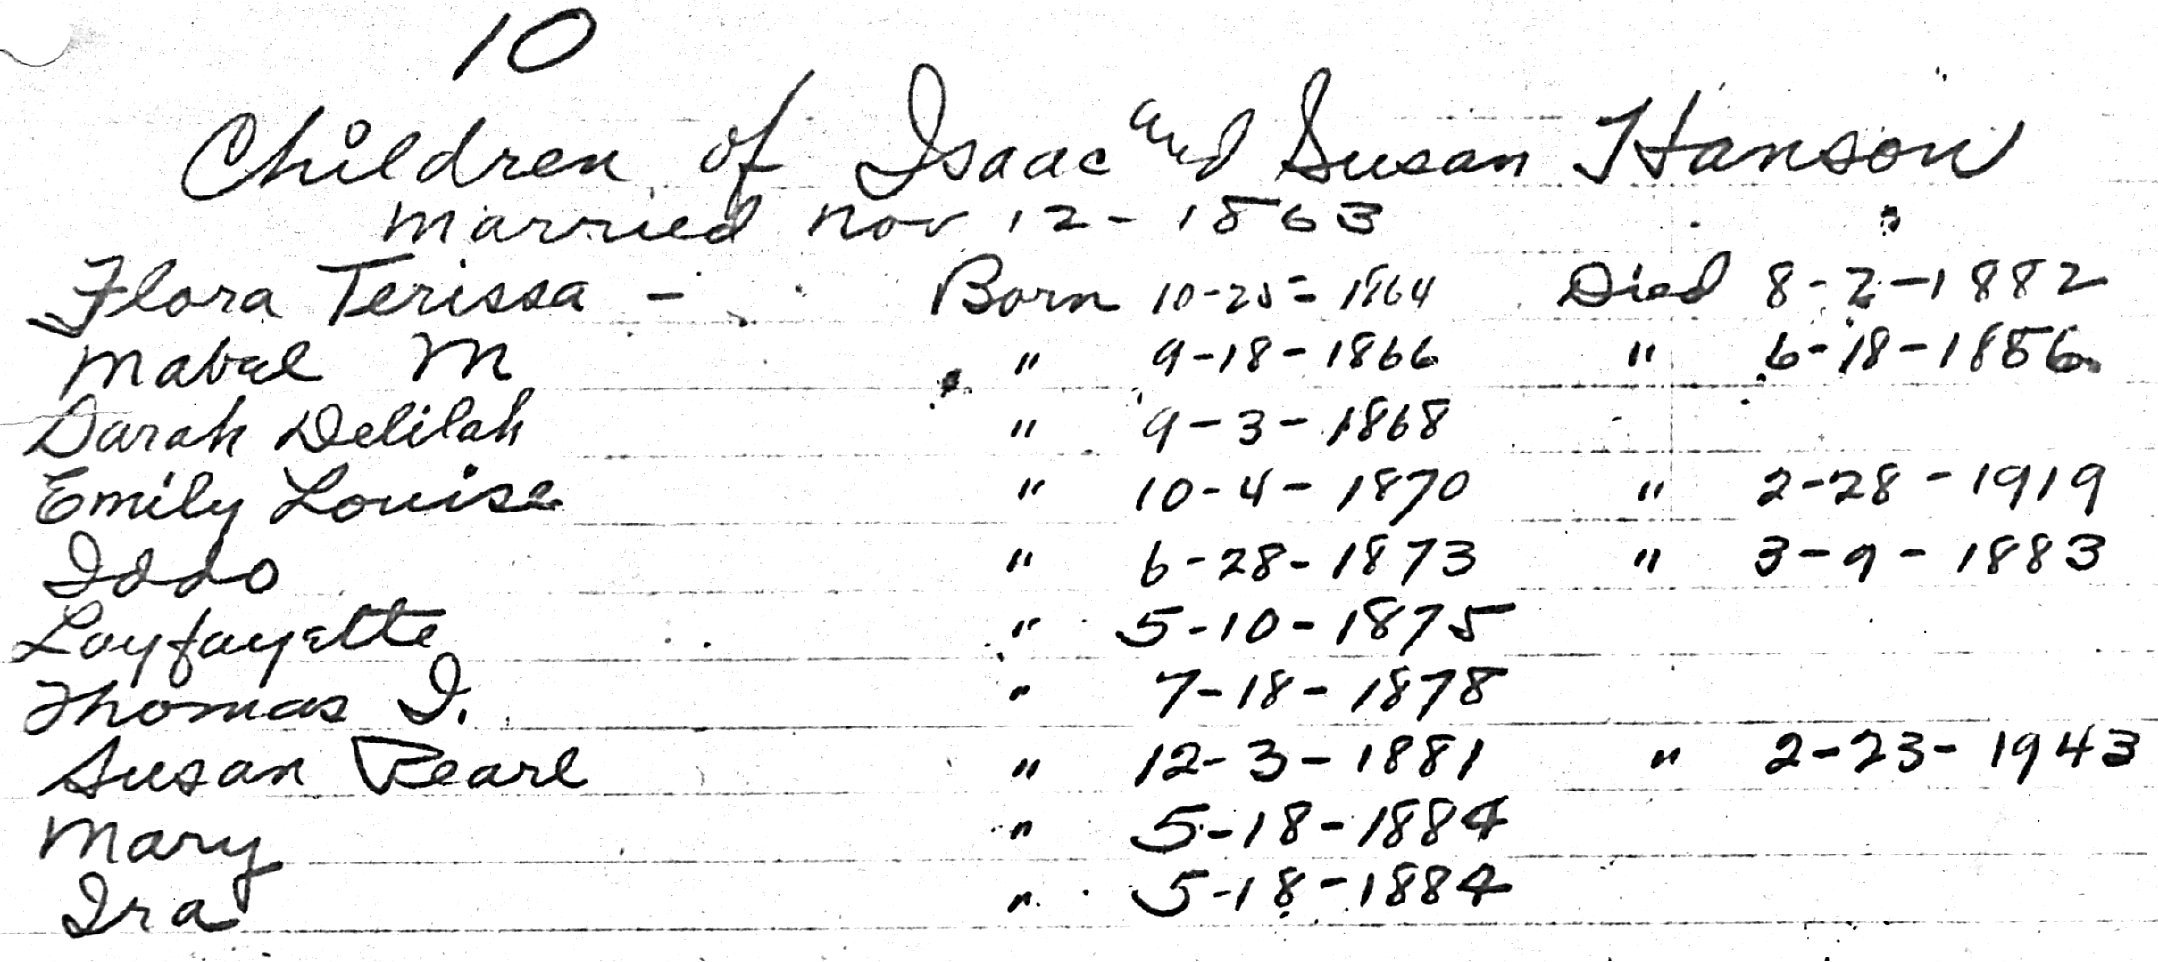 10
Children of Isaac and Susan Hanson
Married Nov 12-1863
Flora Terissa - Born 10-25-1864 Died 8-2-1882
Mabel M " 9-18-1866 " 6-18-1856
Sarah Delilah " 9-3-1868
Emily Louise " 10-4-1870 " 2-28-1919
Iddo " 6-28-1873 " 3-9-1883
Layfayette " 5-10-1875
Thomas I. " 7-18-1878
Susan Pearl " 12-3-1881 " 2-23-1943
Mary " 5-18-1884
Ira " 5-18-1884